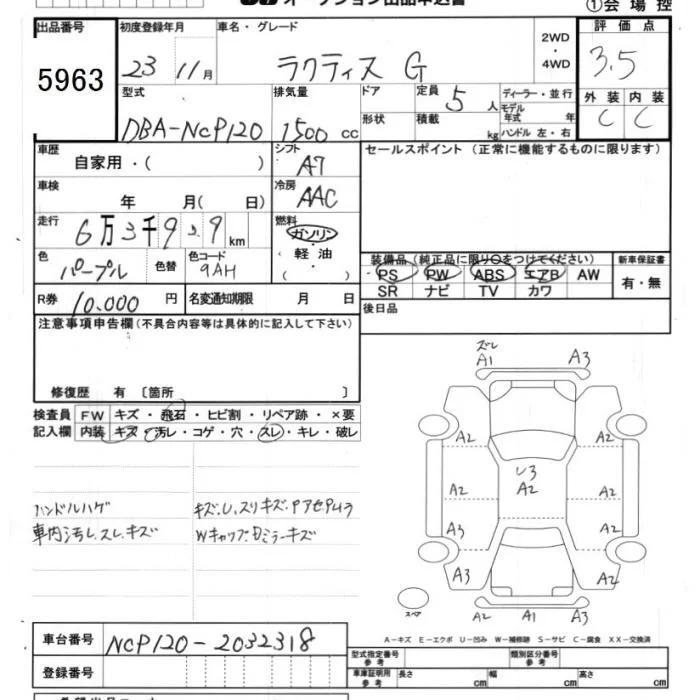 オークション出品申込書
①会場控
出品番号 5963
初度登録年月 23 11月
車名・グレード ラクティス G
2WD・4WD
評価点 3.5
外装 C 内装 C
型式 DBA-NCP120
排気量 1500 cc
ドア
形状
定員 5 人
積載 kg
ディーラー・並行
モデル年式 年
ハンドル 左・右
車歴 自家用・( )
シフト A7
セールスポイント (正常に機能するものに限ります)
車検 年 月(日)
冷房 AAC
走行 6万3千9 9 km
燃料 ガソリン・軽油・( )
色 パープル
色替
色コード 9AH
装備品(純正品に限り○をつけてください)
PS PW ABS エアB AW
SR ナビ TV カワ
新車保証書 有・無
R券 10,000 円
名変通知期限 月 日
後日品
注意事項申告欄(不具合内容等は具体的に記入して下さい)
修復歴 有 〔箇所 〕
検査員記入欄
FW キズ・飛石・ヒビ割・リペア跡・×要
内装 キズ・汚レ・コゲ・穴・スレ・キレ・破レ
ハンドルハゲ
車内汚レ、スレ、キズ
キズ、U、スリキズ、
Wキャップ、ミラーキズ
ズレ
A1 A3
A2 A2
A2 A2 A2
A3 A2
A3 A2
A2 A1 A3
スペア
A-キズ E-エクボ U-凹み W-補修跡 S-サビ C-腐食 XX-交換済
車台番号 NCP120-2032318
登録番号
型式指定番号 参考
類別区分番号 参考
車庫証明用 参考 長さ cm 幅 cm 高さ cm